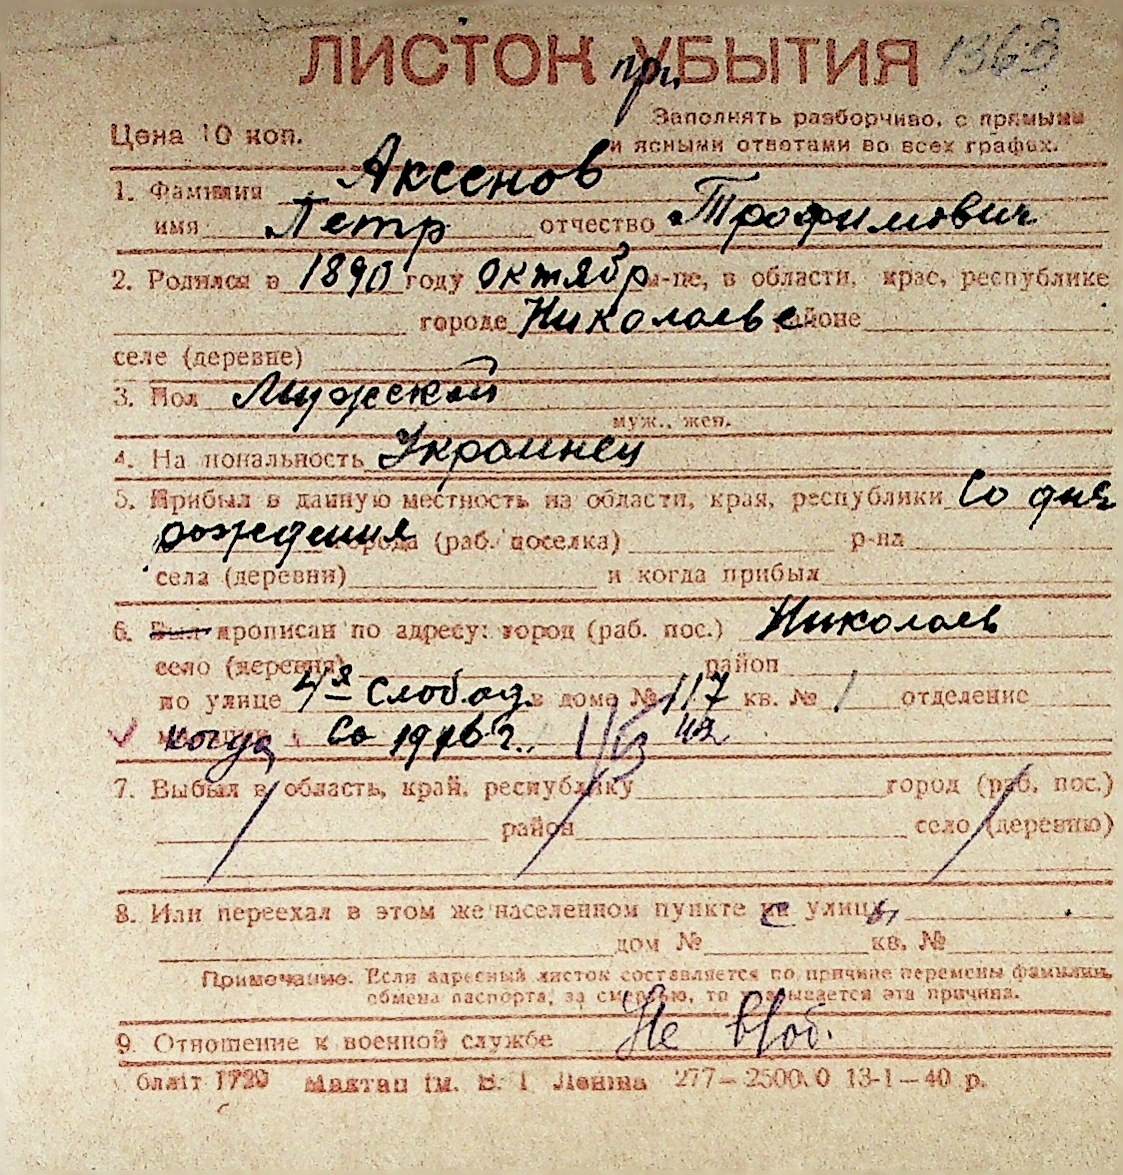 ЛИСТОК при УБЫТИЯ 1368
Заполнять разборчиво, с прямыми
Цена 10 коп. и ясными ответами во всех графах.
1. Фамилия Аксенов
имя Петр отчество Трофимович
2. Родился в 1890 году октябр м-це, в области, крае, республике
городе Николаеве районе
селе (деревне)
3. Пол Мужской
муж., жен.
4. На ноналность Украинец
5. Прибыл в данную местность из области, края, республики Со дня
рождения города (раб. поселка) р-на
села (деревни) и когда прибыл
6. Был прописан по адресу: город (раб. пос.) Николаев
село (деревня) район
по улице 4я Слобод. в доме № 117 кв. № 1 отделение
когда Со 1916 г. 1/IХ 42
7. Выбыл в область, край, республику город (раб. пос.)
район село (деревню)
8. Или переехал в этом же населенном пункте с улицы
дом № кв. №
Примечание. Если адресный листок составляется по причине перемены фамилии,
обмена паспорта, за смертью, то указывается эта причина.
9. Отношение к военной службе Не в/об.
Облліт 1720 Мактап ім. В. І Леніна 277—2500.0 13-1—40 р.